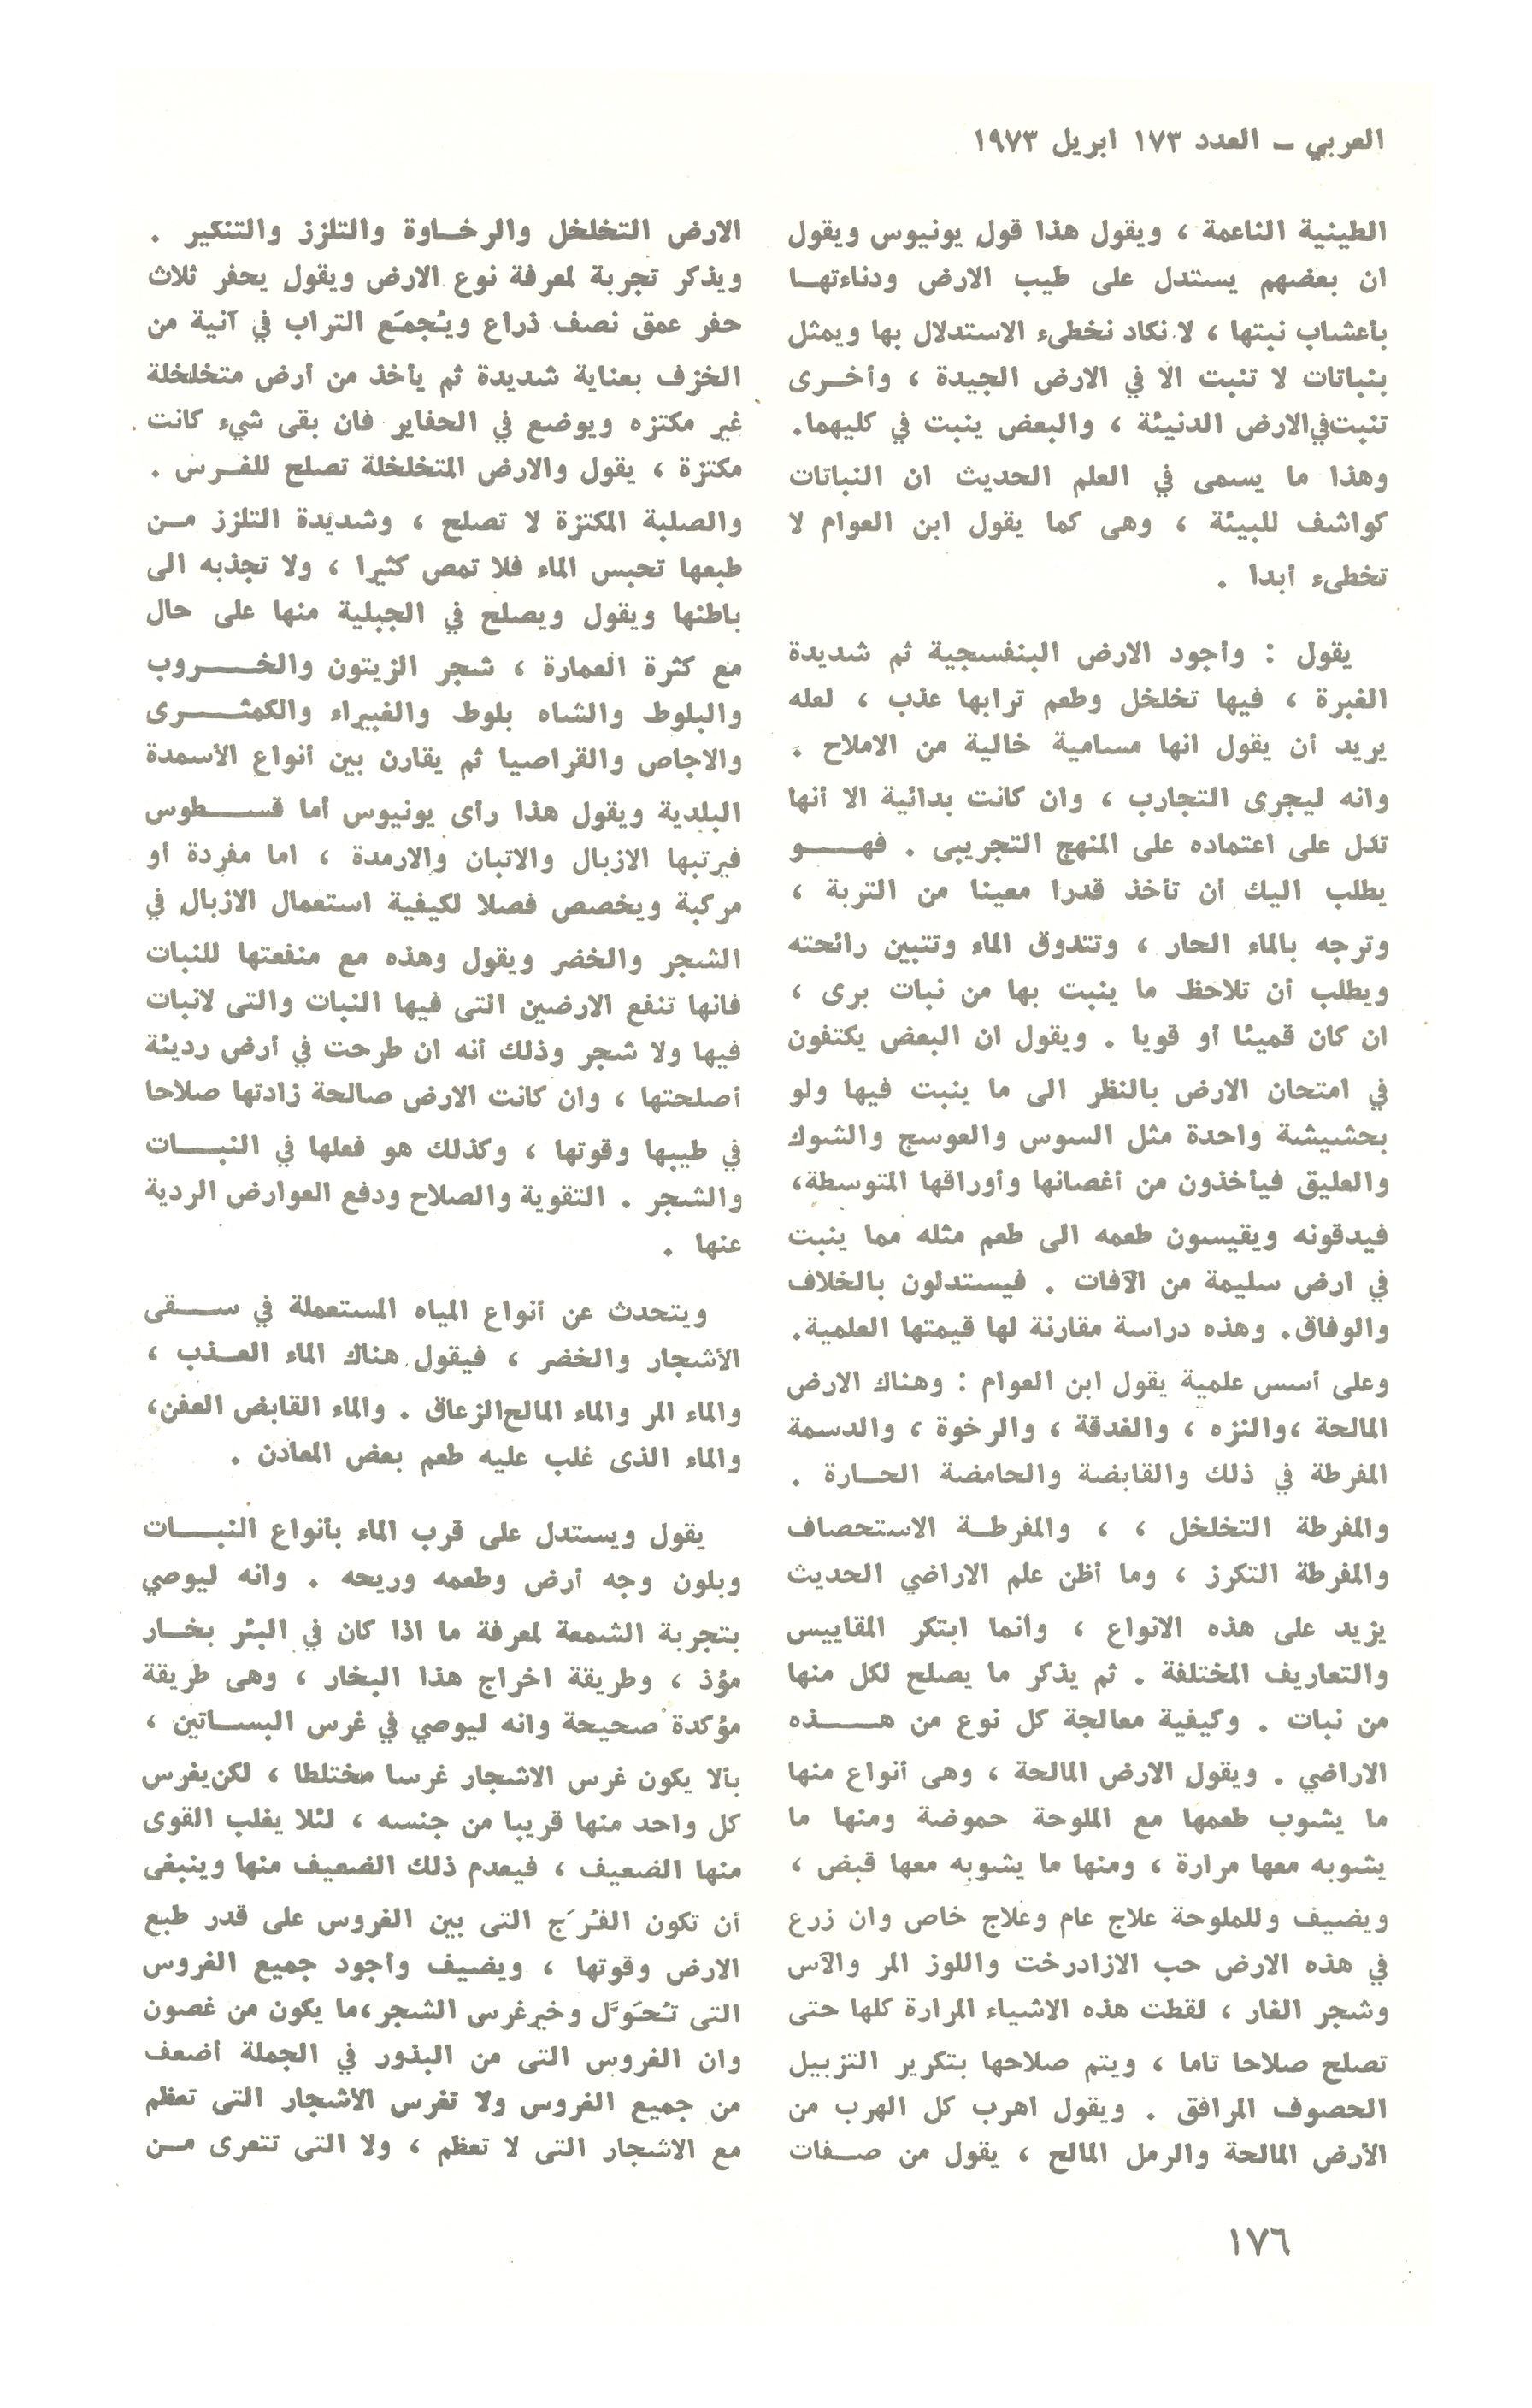 العربي – العدد ١٧٣ ابريل ١٩٧٣
الطينية الناعمة ، ويقول هذا قول يونيوس ويقول
ان بعضهم يستدل على طيب الارض ودناءتها
بأعشاب نبتها ، لا نكاد نخطىء الاستدلال بها ويمثل
بنباتات لا تنبت الا في الارض الجيدة ، وأخرى
تنبت في الارض الدنيئة ، والبعض ينبت في كليهما.
وهذا ما يسمى في العلم الحديث ان النباتات
كواشف للبيئة ، وهى كما يقول ابن العوام لا
تخطىء أبدا .
يقول : وأجود الارض البنفسجية ثم شديدة
الغبرة ، فيها تخلخل وطعم ترابها عذب ، لعله
يريد أن يقول انها مسامية خالية من الاملاح .
وانه ليجرى التجارب ، وان كانت بدائية الا أنها
تدل على اعتماده على المنهج التجريبى . فهو
يطلب اليك أن تأخذ قدرا معينا من التربة ،
وترجه بالماء الحار ، وتتذوق الماء وتتبين رائحته
ويطلب أن تلاحظ ما ينبت بها من نبات برى ،
ان كان قميئا أو قويا . ويقول ان البعض يكتفون
في امتحان الارض بالنظر الى ما ينبت فيها ولو
بحشيشة واحدة مثل السوس والعوسج والشوك
والعليق فيأخذون من أغصانها وأوراقها المتوسطة،
فيدقونه ويقيسون طعمه الى طعم مثله مما ينبت
في ارض سليمة من الآفات . فيستدلون بالخلاف
والوفاق. وهذه دراسة مقارنة لها قيمتها العلمية.
وعلى أسس علمية يقول ابن العوام : وهناك الارض
المالحة ،والنزه ، والغدقة ، والرخوة ، والدسمة
المفرطة في ذلك والقابضة والحامضة الحارة .
والمفرطة التخلخل ، ، والمفرطة الاستحصاف
والمفرطة التكرز ، وما أظن علم الاراضي الحديث
يزيد على هذه الانواع ، وأنما ابتكر المقاييس
والتعاريف المختلفة . ثم يذكر ما يصلح لكل منها
من نبات . وكيفية معالجة كل نوع من هذه
الاراضي . ويقول الارض المالحة ، وهى أنواع منها
ما يشوب طعمها مع الملوحة حموضة ومنها ما
يشوبه معها مرارة ، ومنها ما يشوبه معها قبض ،
ويضيف وللملوحة علاج عام وعلاج خاص وان زرع
في هذه الارض حب الازادرخت واللوز المر والآس
وشجر الغار ، لقطت هذه الاشياء المرارة كلها حتى
تصلح صلاحا تاما ، ويتم صلاحها بتكرير التزبيل
الحصوف المرافق . ويقول اهرب كل الهرب من
الأرض المالحة والرمل المالح ، يقول من صفات
الارض التخلخل والرخاوة والتلزز والتنكير .
ويذكر تجربة لمعرفة نوع الارض ويقول يحفر ثلاث
حفر عمق نصف ذراع ويُجمَع التراب في آنية من
الخزف بعناية شديدة ثم يأخذ من أرض متخلخلة
غير مكتزه ويوضع في الحفاير فان بقى شيء كانت
مكتزة ، يقول والارض المتخلخلة تصلح للغرس .
والصلبة المكتزة لا تصلح ، وشديدة التلزز من
طبعها تحبس الماء فلا تمص كثيرا ، ولا تجذبه الى
باطنها ويقول ويصلح في الجبلية منها على حال
مع كثرة العمارة ، شجر الزيتون والخروب
والبلوط والشاه بلوط والغبيراء والكمثرى
والاجاص والقراصيا ثم يقارن بين أنواع الأسمدة
البلدية ويقول هذا رأى يونيوس أما قسطوس
فيرتبها الازبال والاتبان والارمدة ، اما مفردة أو
مركبة ويخصص فصلا لكيفية استعمال الازبال في
الشجر والخضر ويقول وهذه مع منفعتها للنبات
فانها تنفع الارضين التى فيها النبات والتى لانبات
فيها ولا شجر وذلك أنه ان طرحت في أرض رديئة
أصلحتها ، وان كانت الارض صالحة زادتها صلاحا
في طيبها وقوتها ، وكذلك هو فعلها في النبات
والشجر . التقوية والصلاح ودفع العوارض الردية
عنها .
ويتحدث عن أنواع المياه المستعملة في سقى
الأشجار والخضر ، فيقول هناك الماء العذب ،
والماء المر والماء المالح الزعاق . والماء القابض العفن،
والماء الذى غلب عليه طعم بعض المعادن .
يقول ويستدل على قرب الماء بأنواع النبات
وبلون وجه أرض وطعمه وريحه . وانه ليوصي
بتجربة الشمعة لمعرفة ما اذا كان في البئر بخار
مؤذ ، وطريقة اخراج هذا البخار ، وهى طريقة
مؤكدة صحيحة وانه ليوصي في غرس البساتين ،
بألا يكون غرس الاشجار غرسا مختلطا ، لكن يغرس
كل واحد منها قريبا من جنسه ، لئلا يغلب القوى
منها الضعيف ، فيعدم ذلك الضعيف منها وينبغى
أن تكون الفُرَج التى بين الغروس على قدر طبع
الارض وقوتها ، ويضيف وأجود جميع الغروس
التى تُحَوَّل وخير غرس الشجر،ما يكون من غصون
وان الغروس التى من البذور في الجملة أضعف
من جميع الغروس ولا تغرس الأشجار التى تعظم
مع الاشجار التى لا تعظم ، ولا التى تتعرى من
١٧٦